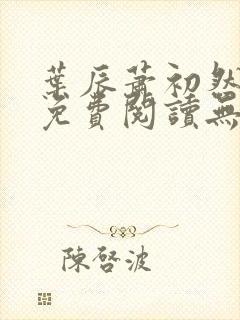 葉辰蕭初然
免費閱讀無
陳啓波